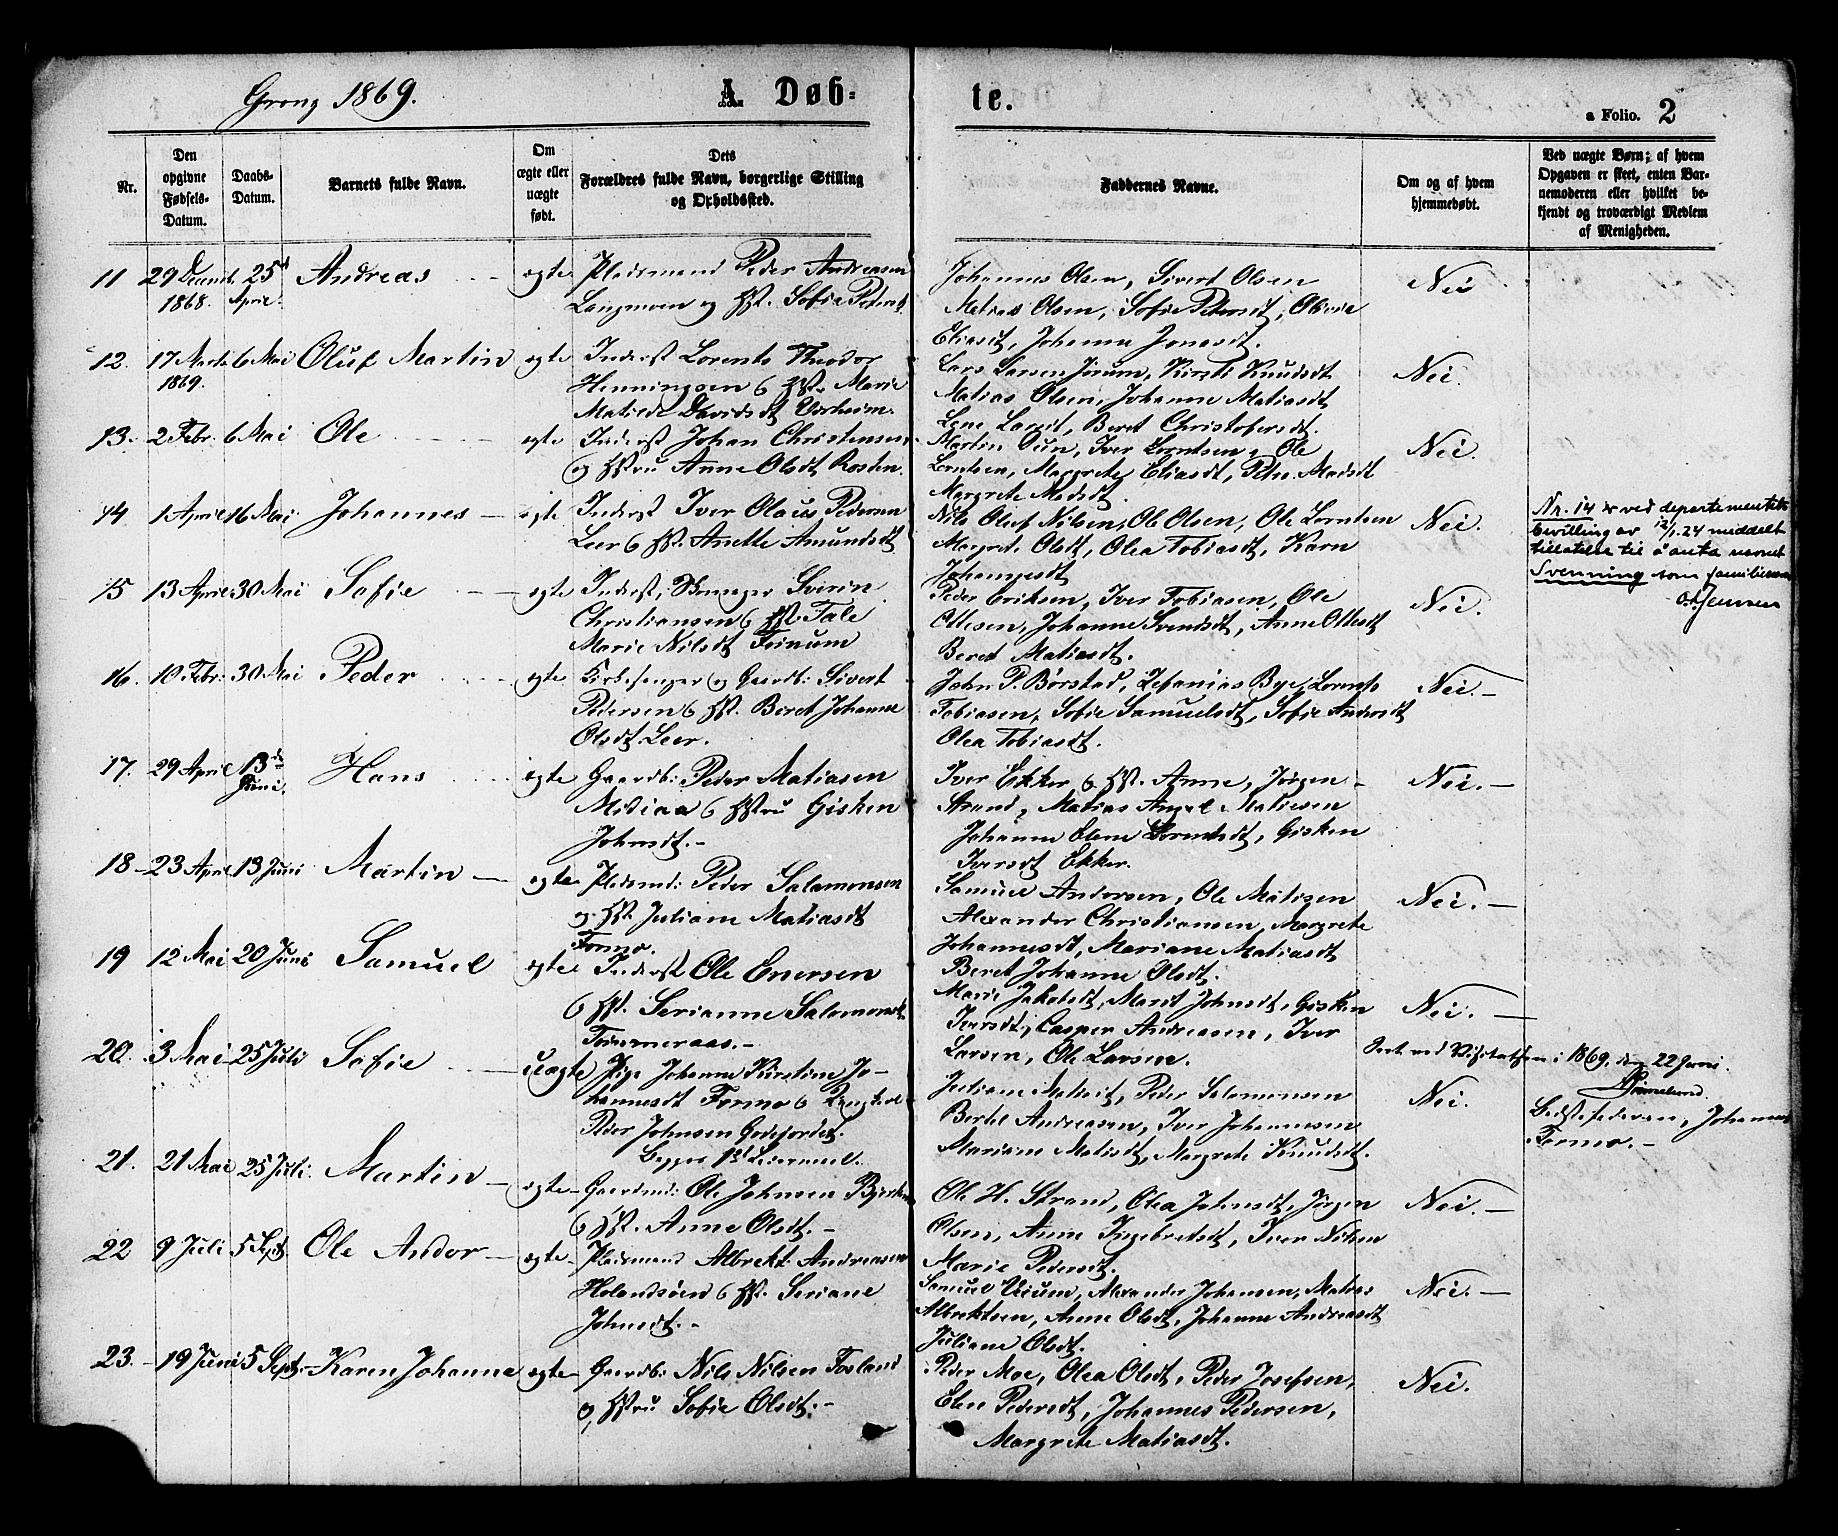 Grong 1869. A Døb= te. a Folio. 2
Nr.
Den opgivne Fødsels-Datum.
Daabs-Datum.
Barnets fulde Navn.
Om ægte eller uægte født.
Dets Forældres fulde Navn, borgerlige Stilling og Opholdssted.
Faddernes Navne.
Om og af hvem hjemmedøbt.
Ved uægte Børn; af hvem Opgaven er skeet, enten Barnemoderen eller hvilket bekjendt og troværdigt Medlem af Menigheden.
11 29 Decemb. 1868. 25d April. Andreas ægte Pladsmand Peder Andreasen
Langmoen og Hst. Sofie Pedersd.
Johannes Olsen, Sivert Olsen
Matias Olsen, Sofie Petersdt, Olivie
Eliasdt, Johanna Jonasdt.
Nei
12. 17 Marts 1869. 6 Mai Oluf Martin ægte Inderst Lorents Theodor
Henningsen & Hst. Marie
Matilde Davidsdt
Lars Larsen Jørum, Kirsti Knudsdt
Matias Olsen, Johanne Matiasdt
Lene Larsdt, Beret Christofersdt.
Nei.
13. 2 Febr. 6 Mai Ole ægte Inderst Johan Christensen
& Hstru Anne Olsdt Rosten.
Martin Iver Lorntsen, Ole
Lorntsen, Margrete Eliasdt, Petra Madsdt
Margrete Madsdt.
Nei.
14 1 April 16 Mai Johannes ægte Inderst Iver Olaus Pedersen
Leer & Hst. Anette Amundsdt
Nils Oluf Nilsen, Ole Olsen, Ole Lorntsen
Margret. Olsdt, Olea Tobiasdt, Karn
Johannesdt
Nei.
Nr. 14 er ved departementets
bevilling av 12/1.24 meddelt
tillatelse til å anta navnet
Svenning som familienavn
O. Jensen
15 13 April 30 Mai Sofie ægte Inderst, Sverin
Christiansen & Hst. Tale
Marie Nilsdt
Peder Eriksen, Iver Tobiasen, Ole
Ottesen, Johanne Svendsdt, Anne Ottesdt
Beret Matiasdt.
Nei.
16. 10 Febr: 30 Mai Peder ægte Kirkesanger og Gaardb: Sivert
Pedersen & Hst. Beret Johanne
Olsdt Leer.
John P. Børstad, Zefanias Bye, Lorents
Tobiasen, Sofie Samuelsdt, Sofie Andersdt
Olea Tobiasdt.
Nei.—
17. 29 April 13de Juni. Hans ægte Gaardb: Peder Matiasen
Metiaa & Hstru Gisken
Johnsdt.—
Iver Ekker & Hst. Anne, Jørgen
Strand, Matias Angel Matiesen
Johanne Elene Lorentsdt, Gisken
Iversdt Ekker.
Nei.—
18— 23 April 13 Juni Martin ægte Pladsmd: Peder Salamonsen
og Hst. Juliane Matiasdt
Formo.
Samuel Andersen, Ole Matisen
Alexander Christiansen, Margrete
Johannesdt, Mariane Matiasdt
Beret Johanne Olsdt.
Nei.—
19 12 Mai 20 Juni Samuel ægte Inderst Ole Enersen
& Hst. Serianne Salomonsdt
Tømmeraas.—
Marie Jakobsdt, Marit Johnsdt, Gisken
Iversdt, Casper Andreasen, Iver
Larsen, Ole Larsen.
Nei.—
Seet ved Visitatsen i 1869, den 22 Juni.
20. 3 Mai 25 Juli Sofie uægte Pige Johanne Kirstine Jo-
hannesdt Formo &
Peder Johnsen Godejordet.
Begges 1st Leiermaal.
Juliane Matisdt, Peder Salomonsen
Bertel Andreasen, Iver Johannesen
Mariane Matisdt, Margrete Knudsdt.
Nei.
Bedstefaderen, Johannes
Formo.—
21. 21 Mai 25 Juli. Martin ægte Gaardmd: Ole Johnsen
& Hst. Anne Olsdt.—
Ole H. Strand, Olea Johnsdt, Jørgen
Olsen, Anne Ingebretsdt, Iver Nilsen
Marie Pedersdt.
Nei.—
22 9 Juli 5 Sept. Ole Andor ægte Pladsmand Albrekt Andreasen
Holandsøen & Hst. Seriane
Johnsdt.—
Samuel Alexander Johansen, Matias
Albrektsen, Anne Olsdt, Johanne Andreasdt
Juliane Olsdt.
Nei.—
23. 19 Juni 5 Sept. Karen Johanne ægte Gaardb: Nils Nilsen Fosland
og Hstru Sofie Olsdt.—
Peder Moe, Olea Olsdt, Peder Josefsen,
Elen Pedersdt, Johannes Pedersen,
Margrete Matiasdt.
Nei.